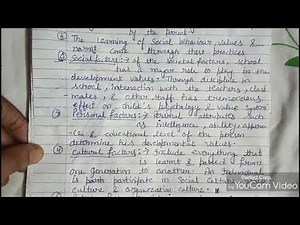 by the parent
① The learning of Social behaviour, values &
norms through their practices
② Social factors :→ Of the societal factors, school
has a major role to play in the
development values. Through discipline in
school, interaction with the teachers, class
mates, & other it has tremendous
effect on child's psychology and value system
③ Personal factors :→ Personal attributes such
as intelligence, ability, appear
& educational level of the person
determine his developmental values.
④ Cultural factors :→ Include everything that
is learnt & passed from
one generation to another. An individual
is parts participate in Social culture, group
culture & organization culture.
Perfect Corp.
YouCam Video